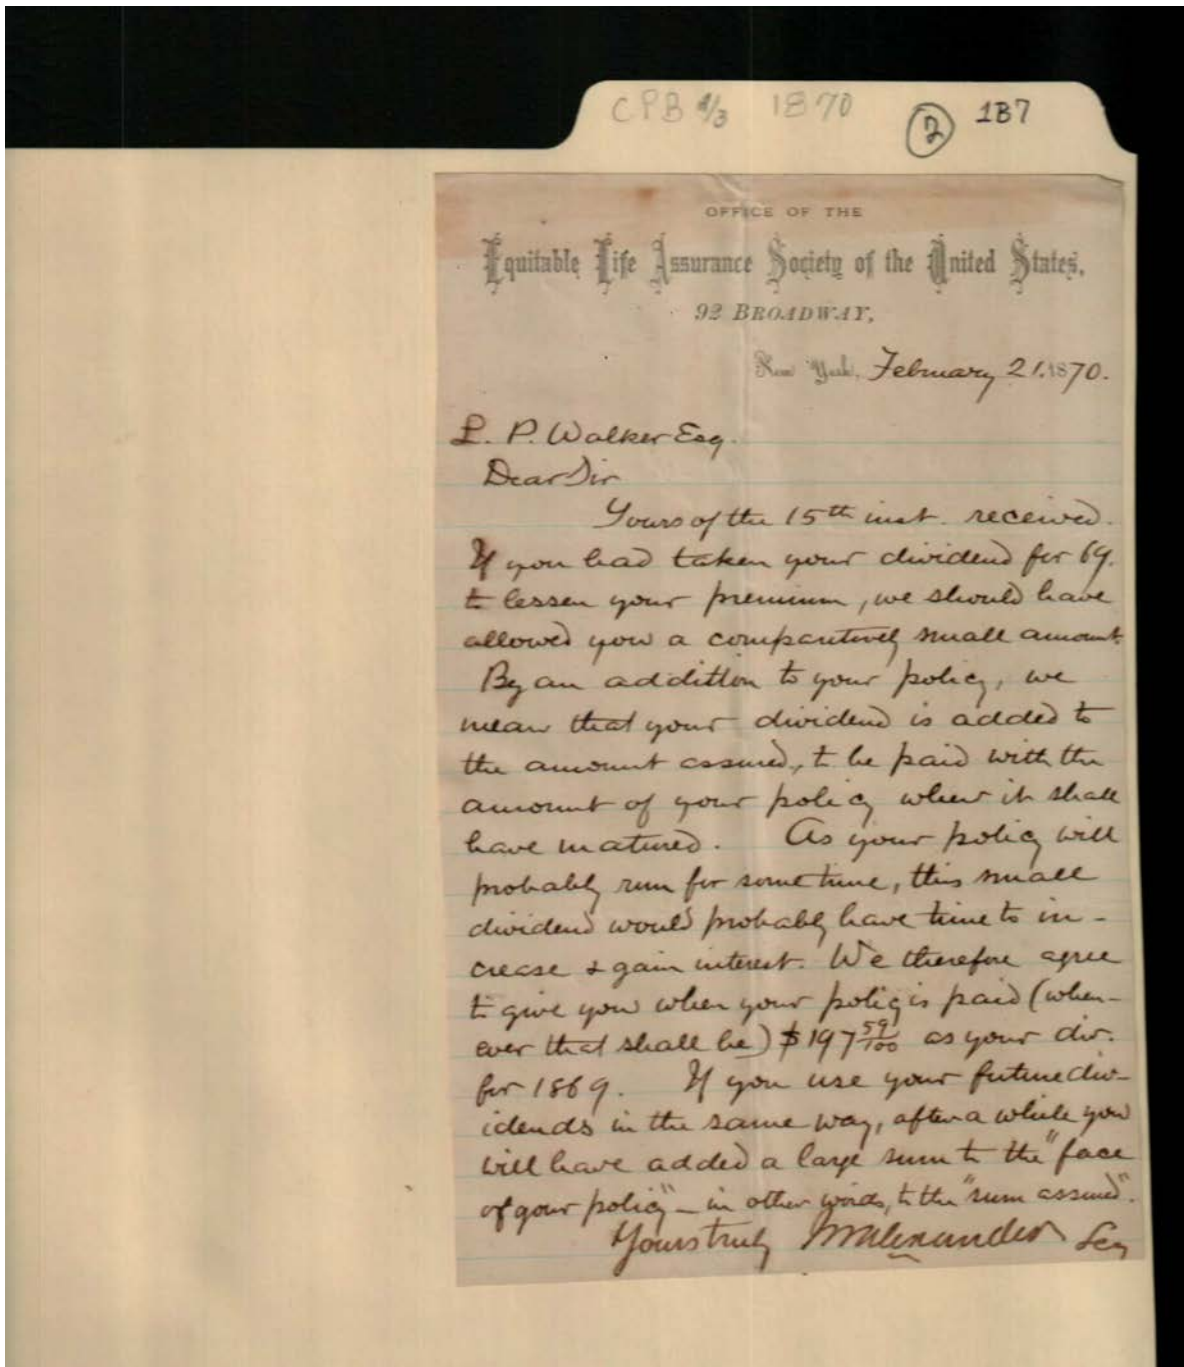 CPB 4/3 1870 2 1B7
OFFICE OF THE
Equitable Life Assurance Society of the United States,
92 BROADWAY,
New York, February 21. 1870.
L. P. Walker Esq.
Dear Sir
Yours of the 15th inst. received.
If you had taken your dividend for 69.
to lessen your premium, we should have
allowed you a comparitively small amount
By an addition to your policy, we
mean that your dividend is added to
the amount assured, to be paid with the
amount of your policy when it shall
have matured. As your policy will
probably run for some time, this small
dividend would probably have time to in-
crease & gain interest. We therefore agree
to give you when your policy is paid (when-
ever that shall be) $197 59/100 as your div.
for 1869. If you use your future div-
idends in the same way, after a while you
will have added a large sum to the "face
of your policy" - in other words, to the "sum assured".
Yours truly Alexander Secy